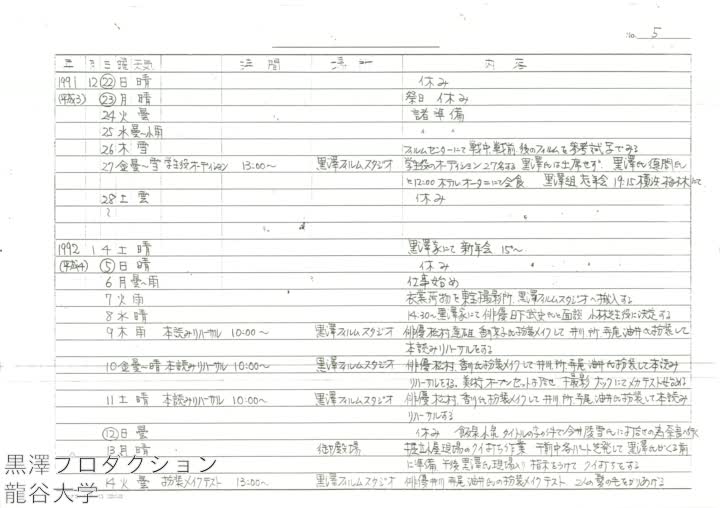 No. 5
年 月 日 曜 天気 時間 場所 内容
1991 12 22 日 晴 休み
(平成3) 23 月 晴 祭日 休み
24 火 曇 諸準備
25 水 曇〜小雨 〃 〃
26 木 雪 フィルムセンターにて戦中戦前後のフィルムを参考試写でみる
27 金 曇〜雪 学生役オーディション 13:00〜 黒澤フィルムスタジオ 学生役のオーディション27名する 黒澤氏は出席せず 黒澤氏
と12:00ホテルオークラにて会食 黒澤組忘年会 19:15 横浜 にて
28 土 曇 休み
〜
1992 1 4 土 晴 黒澤家にて新年会 15°〜
(平成4) 5 日 晴 休み
6 月 曇〜雨 仕事始め
7 火 雨 衣裳荷物を東宝撮影所、黒澤フィルムスタジオへ搬入する
8 水 晴 14:30〜黒澤家にて俳優日下武史氏と面談 小林役に決定する
9 木 雨 本読みリハーサル 10:00〜 黒澤フィルムスタジオ 俳優松村達雄 香川京子氏扮装メイクして井川 所 寺尾 油井氏扮装して
本読みリハーサルをする
10 金 曇〜晴 本読みリハーサル 10:00〜 黒澤フィルムスタジオ 俳優松村、香川氏扮装メイクして井川 所 寺尾 油井氏扮装して本読み
リハーサルをする。美術オープンセット打合せ 撮影 にてメカテスト
11 土 晴 本読みリハーサル 10:00〜 黒澤フィルムスタジオ 俳優松村、香川氏扮装メイクして井川、所、寺尾、油井氏扮装して本読み
リハーサルする
12 日 曇 休み タイトルの字の件で今井凌雪氏に打合せの為奈良へ
13 月 晴 御殿場 掘立小屋現場のクイ打ち作業 午前中各パートを発して黒澤氏がくる前
に準備 午後黒澤氏現場入り 指示をうけてクイ打ちをする
14 火 曇 扮装メイクテスト 13:00〜 黒澤フィルムスタジオ 俳優井川 寺尾 油井氏の扮装メイクテスト 2人の髪の毛をかりあげる
黒澤プロダクション
龍谷大学